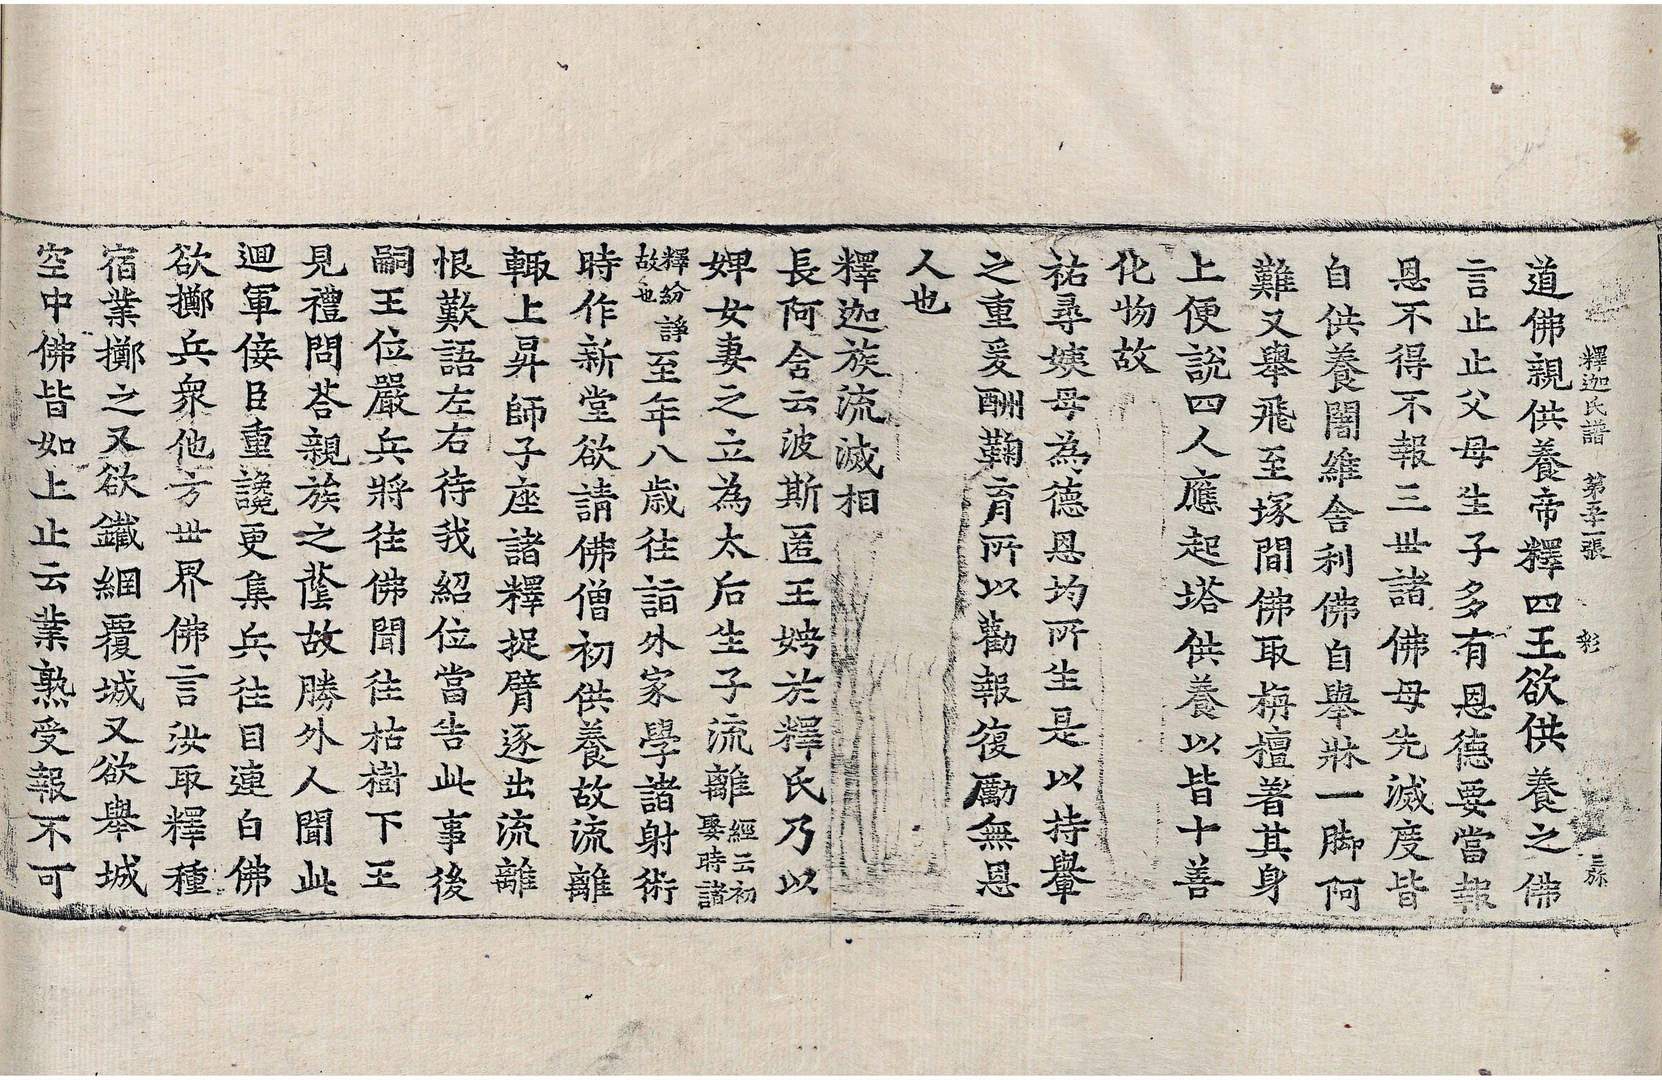 釋迦氏譜 第五十一張 彩
道佛親供養帝釋四王欲供養之佛
言止止父母生子多有恩德要當報
恩不得不報三世諸佛母先滅度皆
自供養闍維舍利佛自舉牀一脚阿
難又舉飛至塚間佛取栴檀著其身
上便說四人應起塔供養以皆十善
化物故
祐尋姨母為德恩均所生是以持轝
之重爰酬鞠育所以勸報復勵無恩
人也
釋迦族流滅相
長阿含云波斯匿王娉於釋氏乃以
婢女妻之立為太后生子流離經云初娶時諸
釋紛諍故也至年八歲往詣外家學諸射術
時作新堂欲請佛僧初供養故流離
輙上昇師子座諸釋捉臂逐出流離
恨歎語左右待我紹位當告此事後
嗣王位嚴兵將往佛聞往枯樹下王
見禮問荅親族之蔭故勝外人聞此
迴軍佞臣重讒更集兵往目連白佛
欲擲兵眾他方世界佛言汝取釋種
宿業擲之又欲鐵網覆城又欲舉城
空中佛皆如上止云業熟受報不可